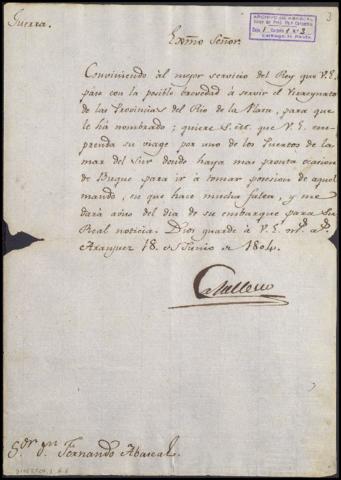 Guerra.
3
ARCHIVO DE ABASCAL
Caja 1 Carpeta 1 Nº 3
Exmo Señor.
Conviniendo al mejor servicio del Rey que V.E.
pase con la posible brevedad à servir el Virreynato
de las Provincias del Rio de la Plata, para que
le há nombrado; quiere S. M. que V. E. em-
prenda su viage por uno de los Puertos de la
mar del Sur donde haya mas pronta ocasion
de Buque para ir à tomar posesion de aquel
mando, en que hace mucha falta, y me
dará aviso del dia de su embarque para Su
Real noticia. Dios guarde à V. E. ms. as.
Aranjuez 18. de Junio de 1804.
Caballero
Sor. Dn. Fernando Abascal.